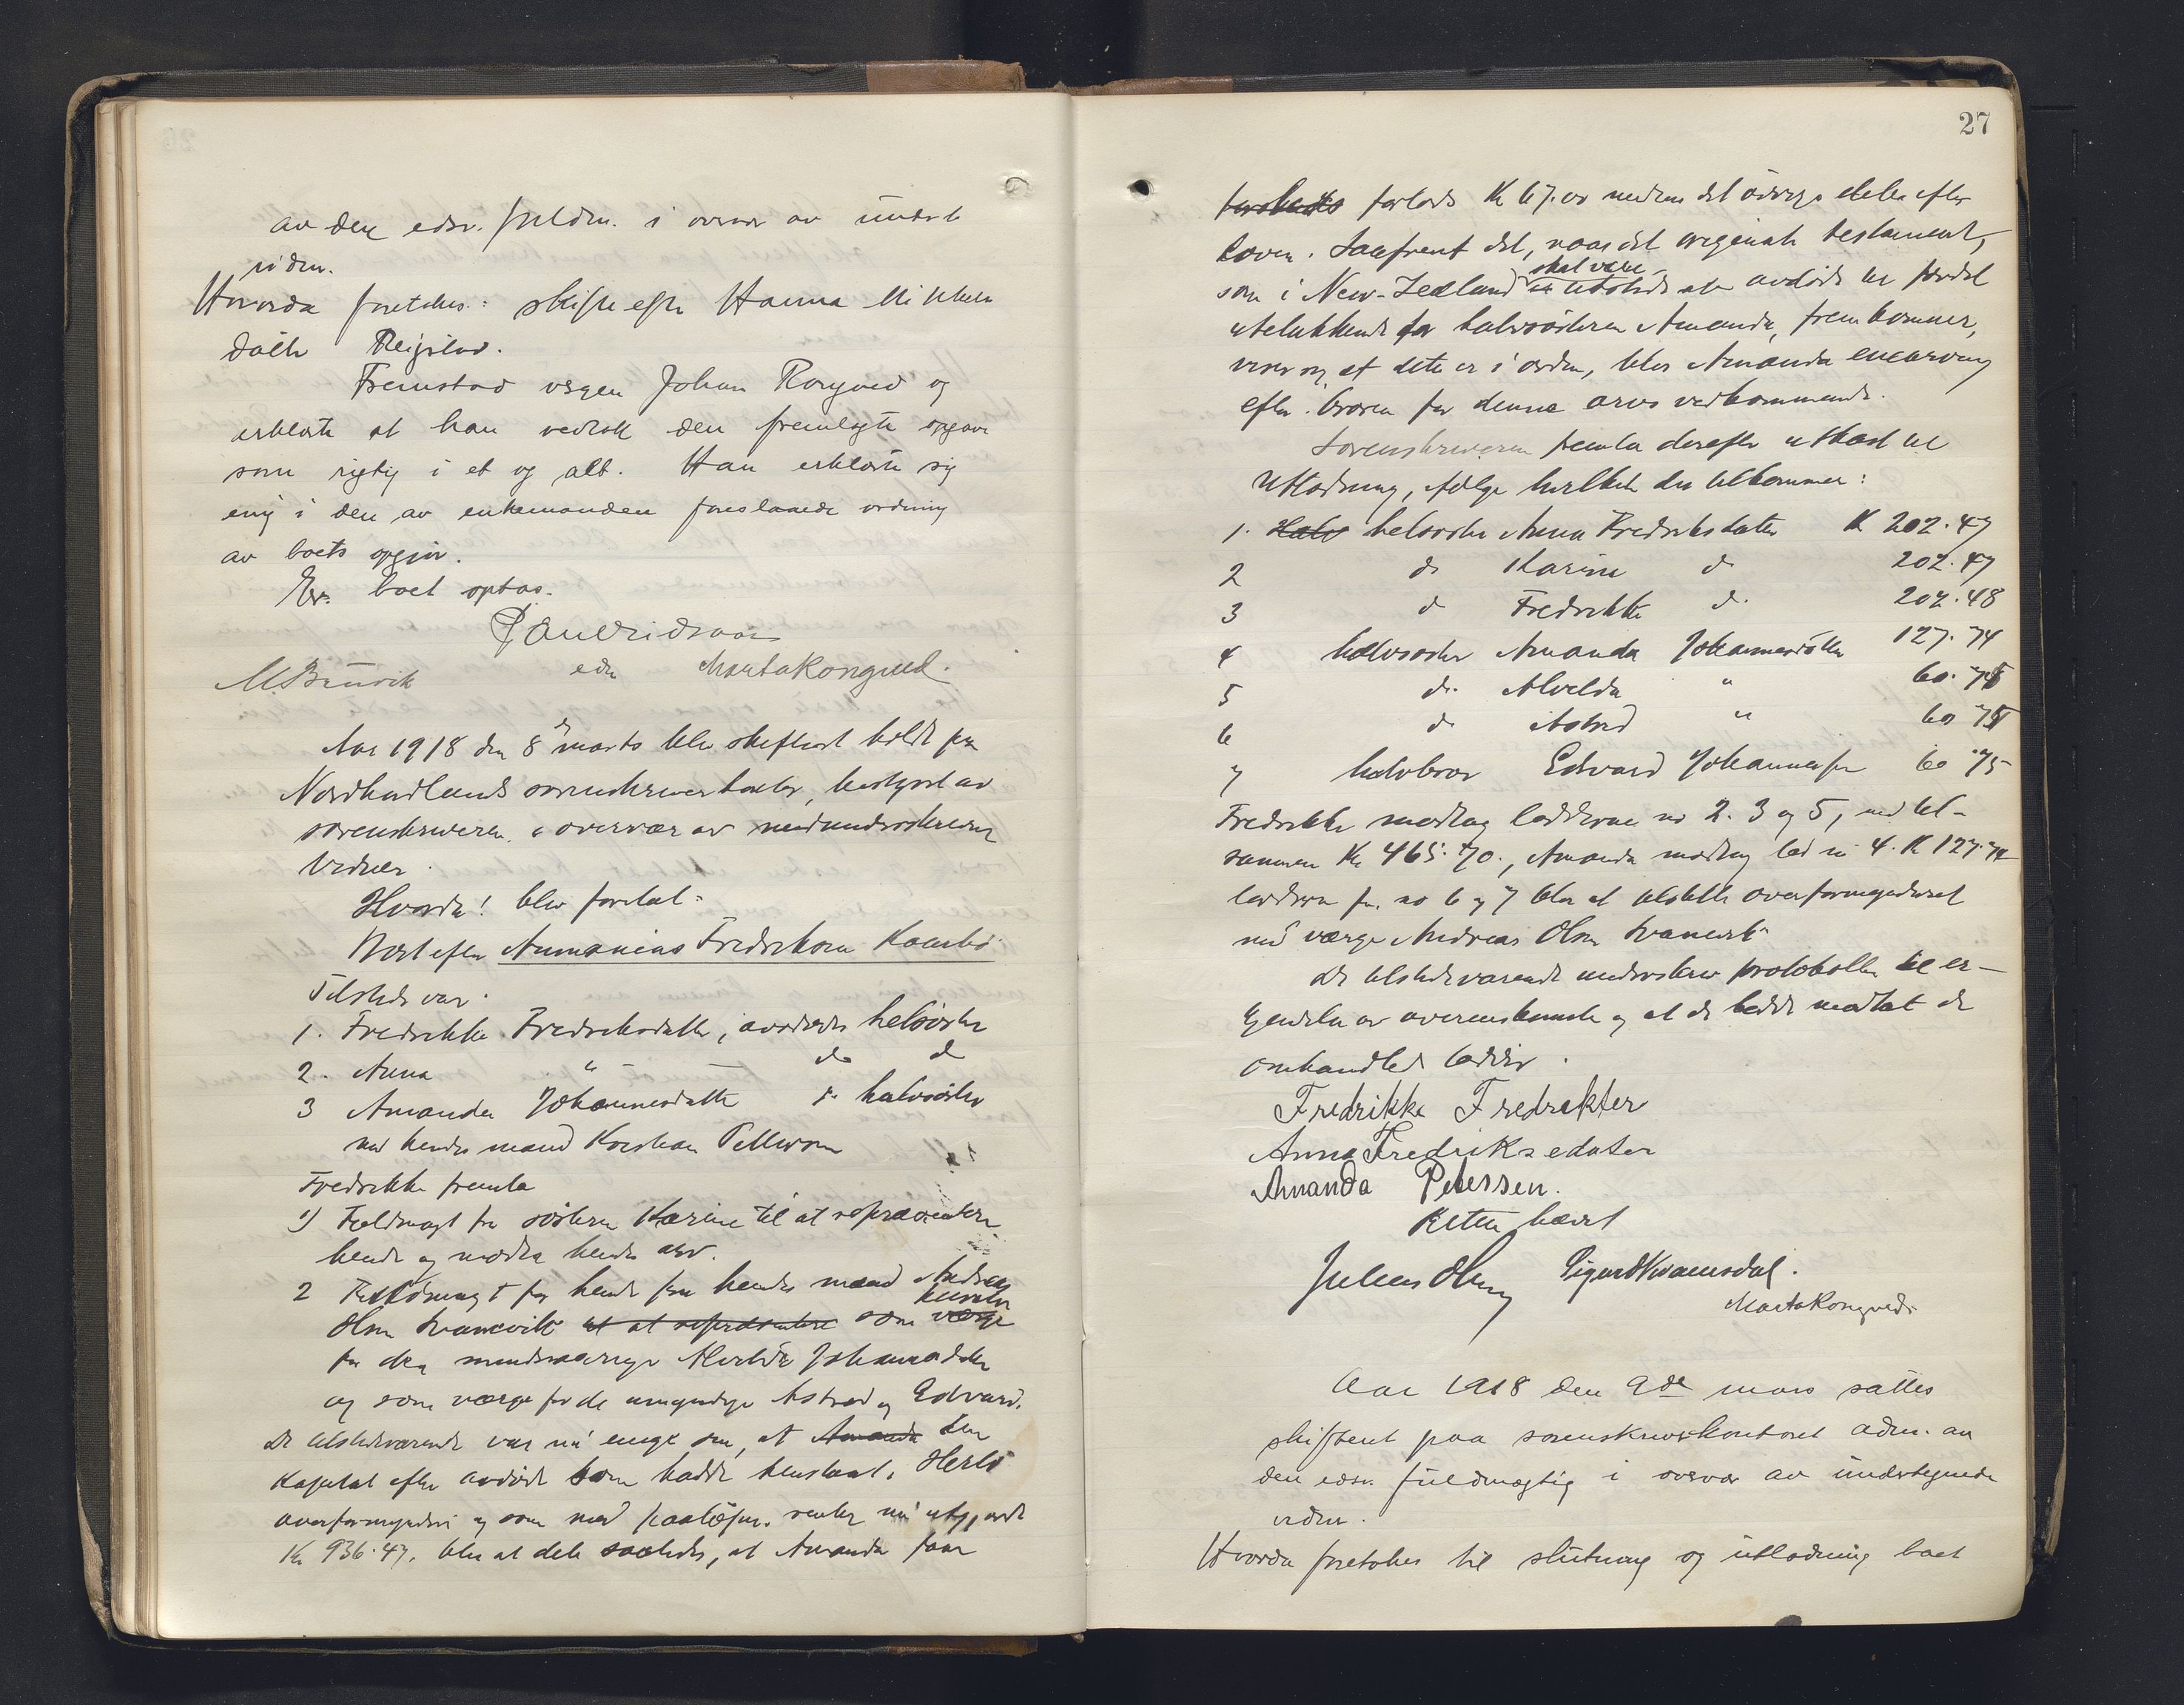 av den edsv. fuldm. i overvær av undert
vidner.
Hvorda foretokes: skifte efter Hanna Mikkels
datter Reigstad.
Fremstod vergen Johan Rongved og
erklærte at han vedtok den fremlagte opgave
som rigtig i et og alt. Han erklærte sig
enig i den av enkemanden foreslaaede ordning
av boets opgjør.
Ev. boet optas.
edsv Marta Rongved.
Aar 1918 den 8de marts blev skifteret holdt paa
Nordhordlands sorenskriverkontor, bestyret av
sorenskriveren, i overvær av medunderskrevne
vidner.
Hvorda! blev foretat:
Boet efter Ananias Fredriksen
Tilstede var:
1. Fredrikke Fredriksdatter, avdødes helsøster
2. Anna " do do
3 Amanda Johannesdatter do halvsøster
med hendes mand Kristian Pettersen
Fredrikke fremla
1) Fuldmagt fra søsteren Karine til at repræsentere
hende og motta hendes arv.
2 Fuldmagt for hende fra hendes mand Andreas
Olsen Svanevik til at repræsentere som kurator verge
for den mindreaarige Alvilde Johannesdatter
og som verge for de umyndige Astrid og Edvard.
De tilstedeværende var nu enige om, at Amanda den
kapital efter avdøde som hadde henstaat i Herlø
overformynderi og som med paaløpne renter nu utgjorde
Kr 936.47, blev at dele saaledes, at Amanda faar
27
forlods Kr 67.00 medens det øvrige deles efter
loven. Saafremt det, naar det originale testament,
som i New-Zealand er skal være utstedt av avdøde til fordel
utelukkende for halvsøsteren Amanda, fremkommer,
viser sig at dette er i orden, blir Amanda enearving
efter broren for denne arvs vedkommende.
Sorenskriveren fremla derefter utkast til
Utlodning, ifølge hvilket der tilkommer:
1. Halv helsøster Anna Fredriksdatter Kr 202.47
2 do Karine do 202.47
3 do Fredrikke do. 202.48
4 halvsøster Amanda Johannesdatter 127.74
5 do. Alvilda " 60.75
6 do Astrid " 60 75
7 halvbror Edvard Johannessen 60 75
Fredrikke mottog loddene no 2. 3 og 5, med til-
sammen Kr 465.70., Amanda mottog lod no 4. Kr 127.74
loddene for no 6 og 7 blev at tilstille overformynderiet
med verge Andreas Olsen Svanevik
De tilstedeværende underskrev protokollen til er-
kjendelse av overenskomsten og at de hadde mottat de
omhandlede lodder.
Fredrikke Fredrekter
Anna Fredriksedater
Amanda Petersen.
Retten hævet
Julius Olsen Sigurd Kvamsdal.
Marta Rongved.
Aar 1918 den 9de mars sattes
skifteret paa sorenskriverkontoret adm. av
den edsv. fuldmægtig i overvær av undertegnede
vidner.
Hvorda foretokes til slutning og utlodning boet